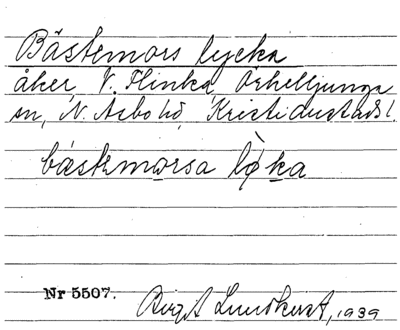 Bästemors lycka
åker, V. Flinka, Örkelljunga
sn, N. Åsbo hd, Kristianstads l.
bästemorsa løka
Nr 5507.
Birgit Lundkvist, 1939